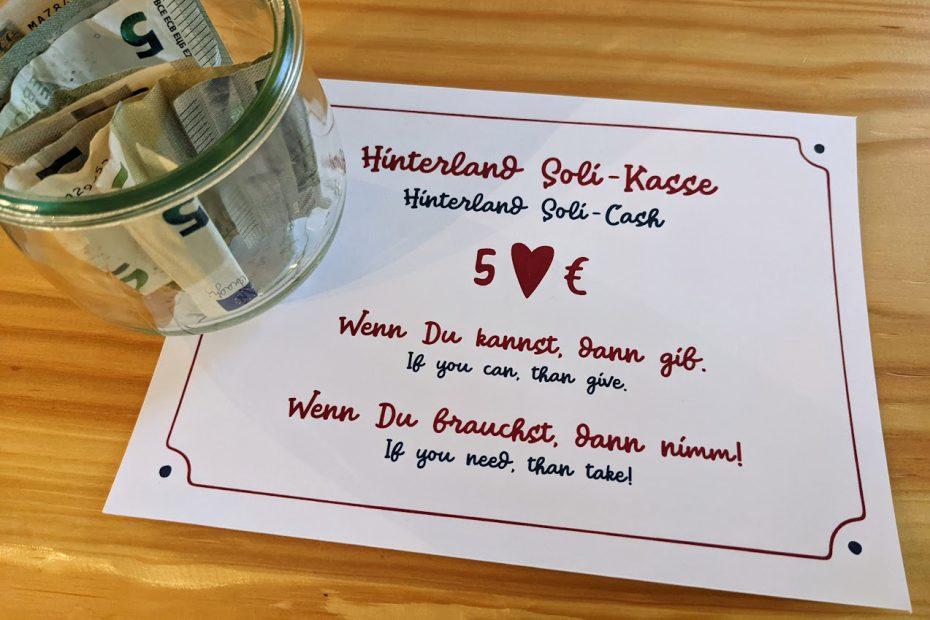 MA78
BCE ECB EЦБ EZ
5
5
Hinterland Soli-Kasse
Hinterland Soli-Cash
5 ♥ €
Wenn Du kannst, dann gib.
If you can, than give.
Wenn Du brauchst, dann nimm!
If you need, than take!